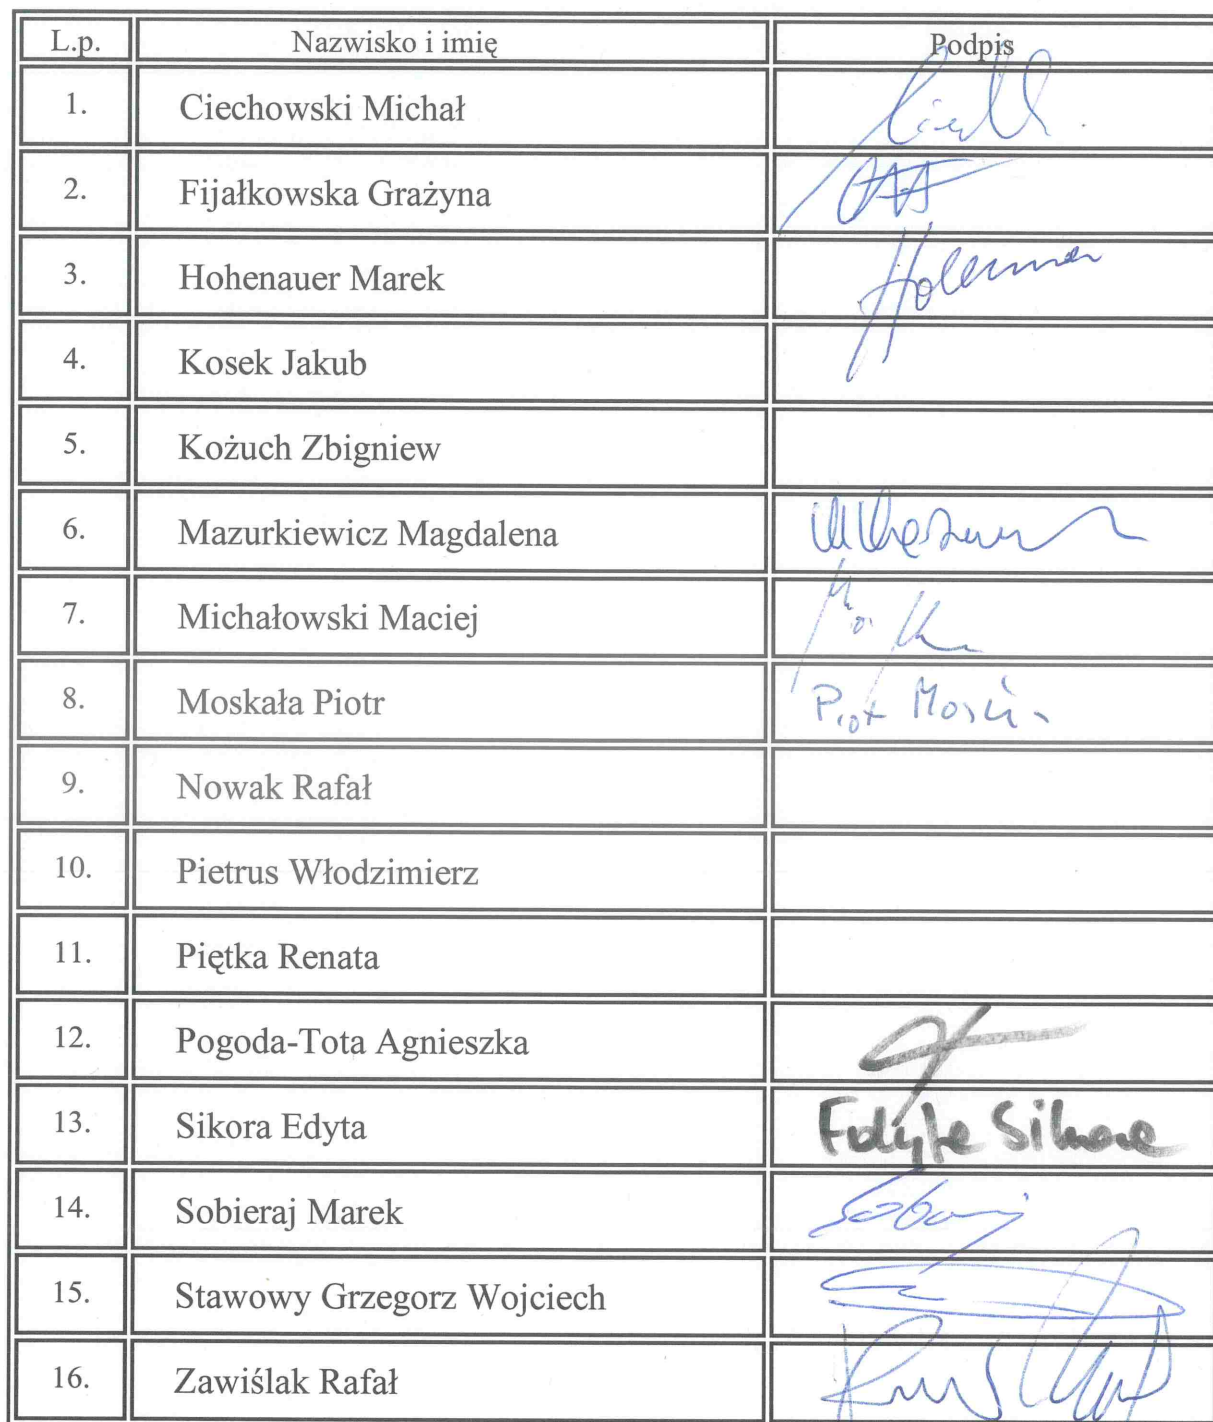 L.p. Nazwisko i imię Podpis
1. Ciechowski Michał
2. Fijałkowska Grażyna
3. Hohenauer Marek
4. Kosek Jakub
5. Kożuch Zbigniew
6. Mazurkiewicz Magdalena
7. Michałowski Maciej
8. Moskała Piotr Piotr
9. Nowak Rafał
10. Pietrus Włodzimierz
11. Piętka Renata
12. Pogoda-Tota Agnieszka
13. Sikora Edyta Edyta Sikora
14. Sobieraj Marek
15. Stawowy Grzegorz Wojciech
16. Zawiślak Rafał